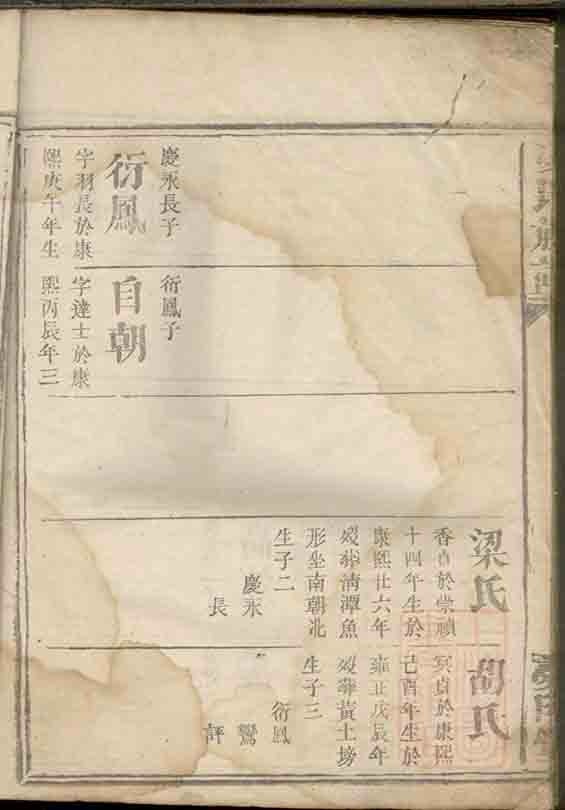 梁氏
香貞於崇禎
十四年生於
康熙廿六年
歿葬清潭魚
形坐南朝北
生子二
慶永
長
胡氏
貞於康熙
己酉年生於
雍正戊辰年
歿葬黃土塝
生子三
衍鳳
鸞
評
慶永長子
衍鳳
字羽長於康
熙庚午年生
衍鳳子
自朝
字達士於康
熙丙辰年三